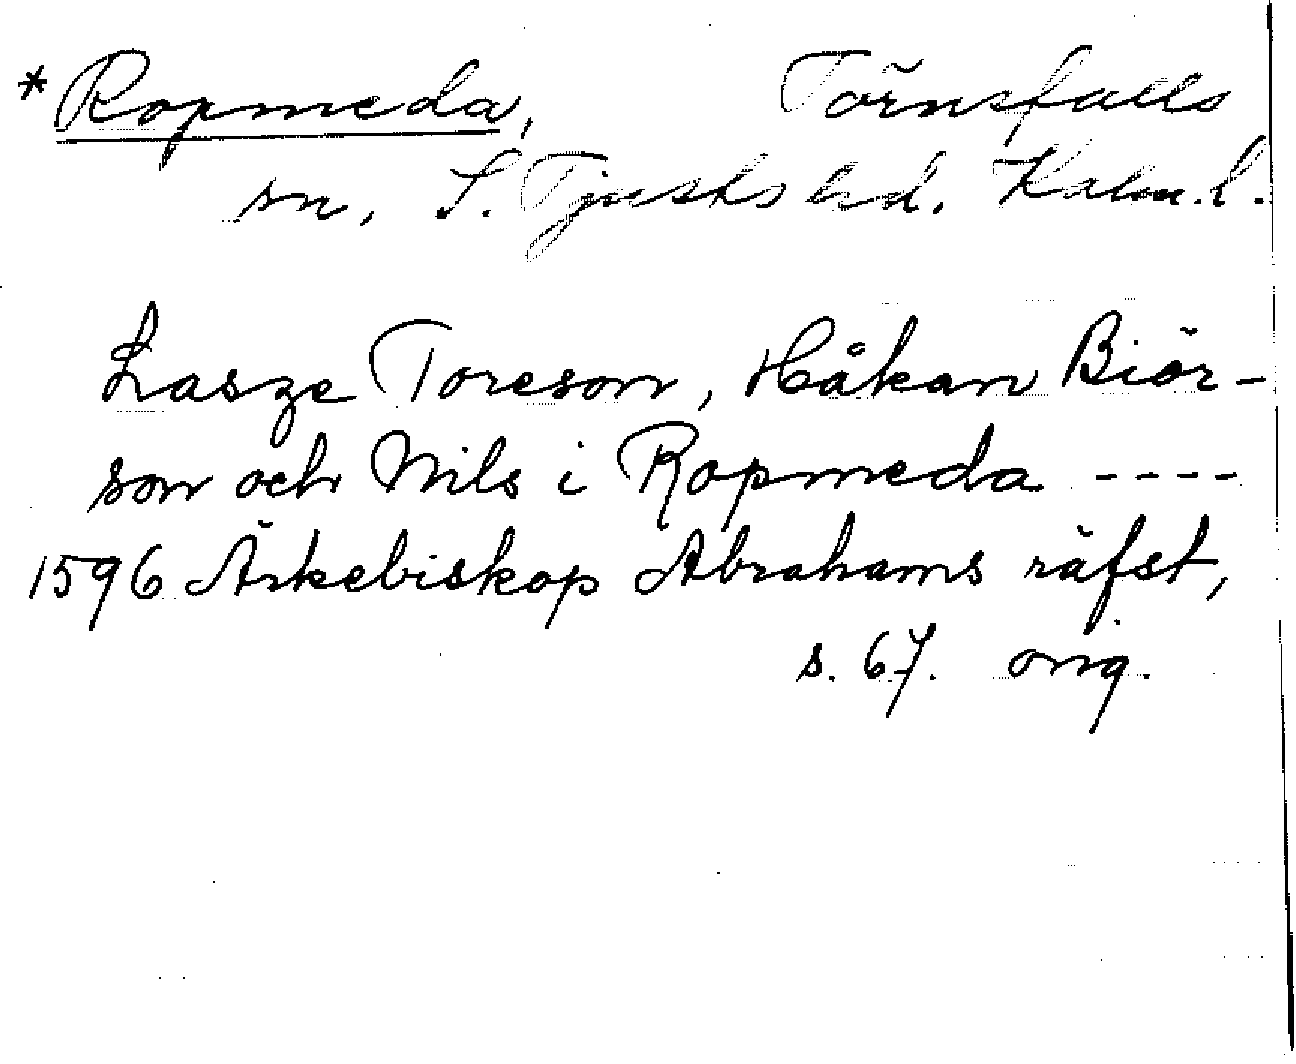 * Ropmeda, Törnsfalls
sn, S. Tjusts hd. Kalm. l.
Lasze Toreson, Håkan Biör-
son och Nils i Ropmeda ----
1596 Ärkebiskop Abrahams räfst,
s. 67. orig.